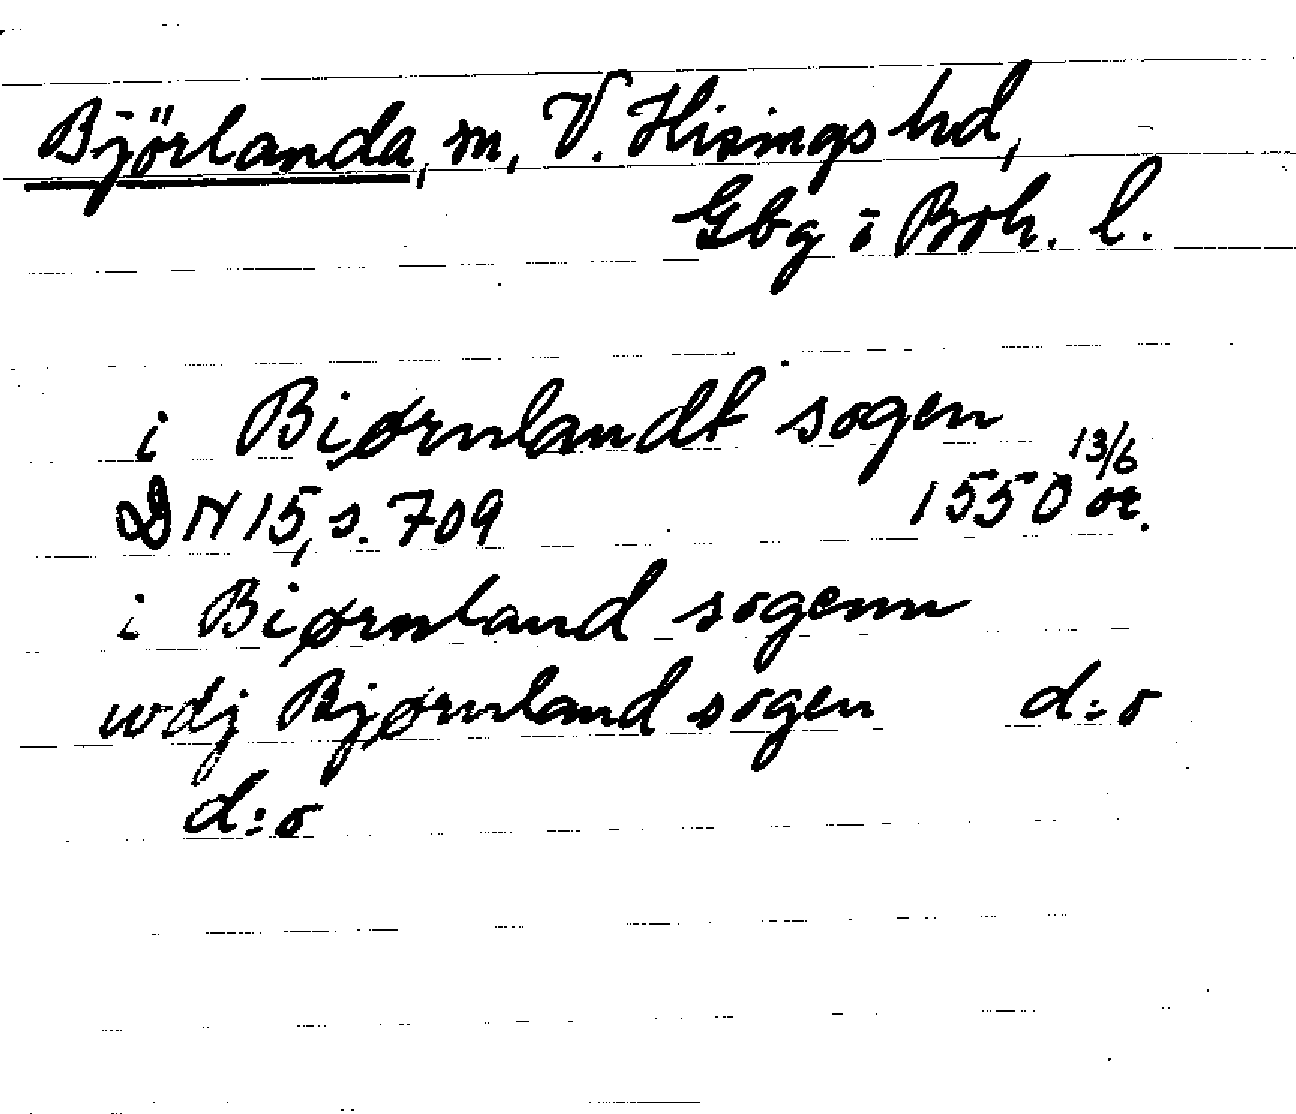 Björlanda, sn, V. Hisings hd,
Gbg o Boh. l.
i Biørnlandt sogen
DN 15, s. 709 1550 13/6 or.
i Biørnland sogenn
wdj Bjørnland sogen d:o
d:o